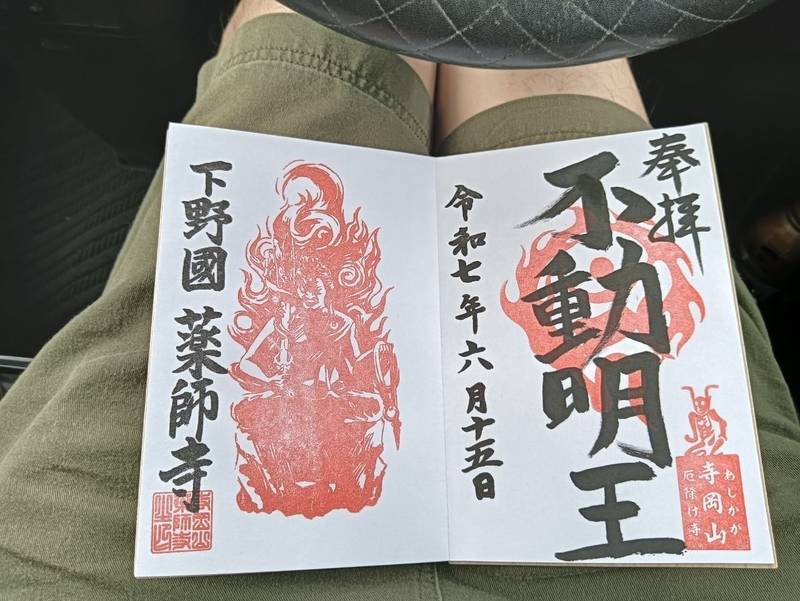 奉拝
不動明王
令和七年六月十五日
あしかが
寺岡山
厄除け寺
下野國 薬師寺